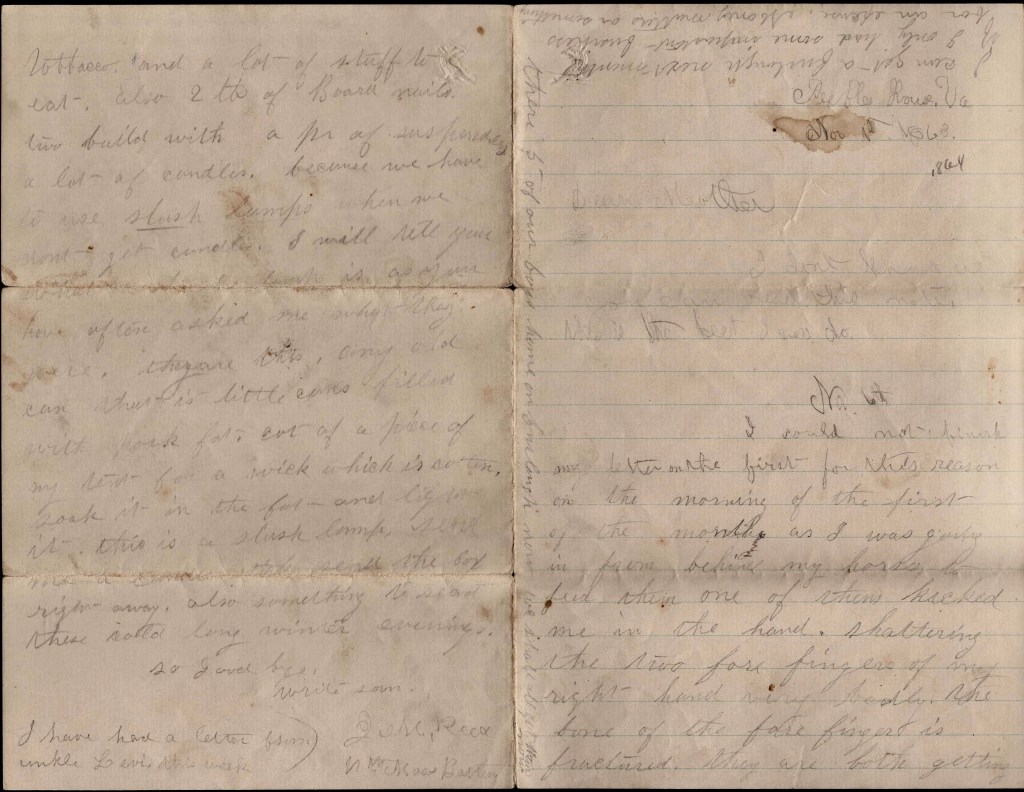 I can get a furlough next month
if I only had some important business
for an excuse. Money matters or something
Nov 1st. 1863.
1864
Dear Mother
I dont know
this is the best I can do.
No. 6th
I could not finish
my letter on the first for this reason
on the morning of the first
of the month as I was going
in from behind my horses to
feed them one of them kicked
me in the hand. shattering
the two fore fingers of my
right hand very badly. The
bone of the fore finger is
fractured. they are both getting
tobbacco. and a lot of stuff to
eat. also 2 lb of Board nails.
two build with a pr of suspenders
a lot of candles. because we have
to use slush lamps when we
dont get candles. I will tell you
what a slush lamp is as you
have often asked me what they
were. they are this, any old
can that is little cans filled
with pork fat. cut of a piece of
my tent for a wick which is coten.
soak it in the fat and light
it. this is a slush lamp. send
me a candle. send the box
right away. also something to read
these cold long winter evenings.
so Good bye.
write soon.
I have had a letter from
unkle Levi this week
there is 5 of our boys home on furlough now